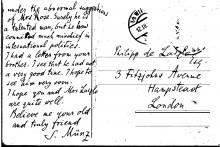 under the abnormal suggestions
of Mrs Rose. Surely he is
a talented man, but he has
comitted much mischief in
international politics.
I had a letter from your
brother. I see that he had not
a very good time. I hope to
see him very soon
I hope you and Mrs
are quite well.
Believe me your old
and truly friend
S. Münz
Philipp de
Esq.
3 Fitzjohns Avenue
Hampstead
London